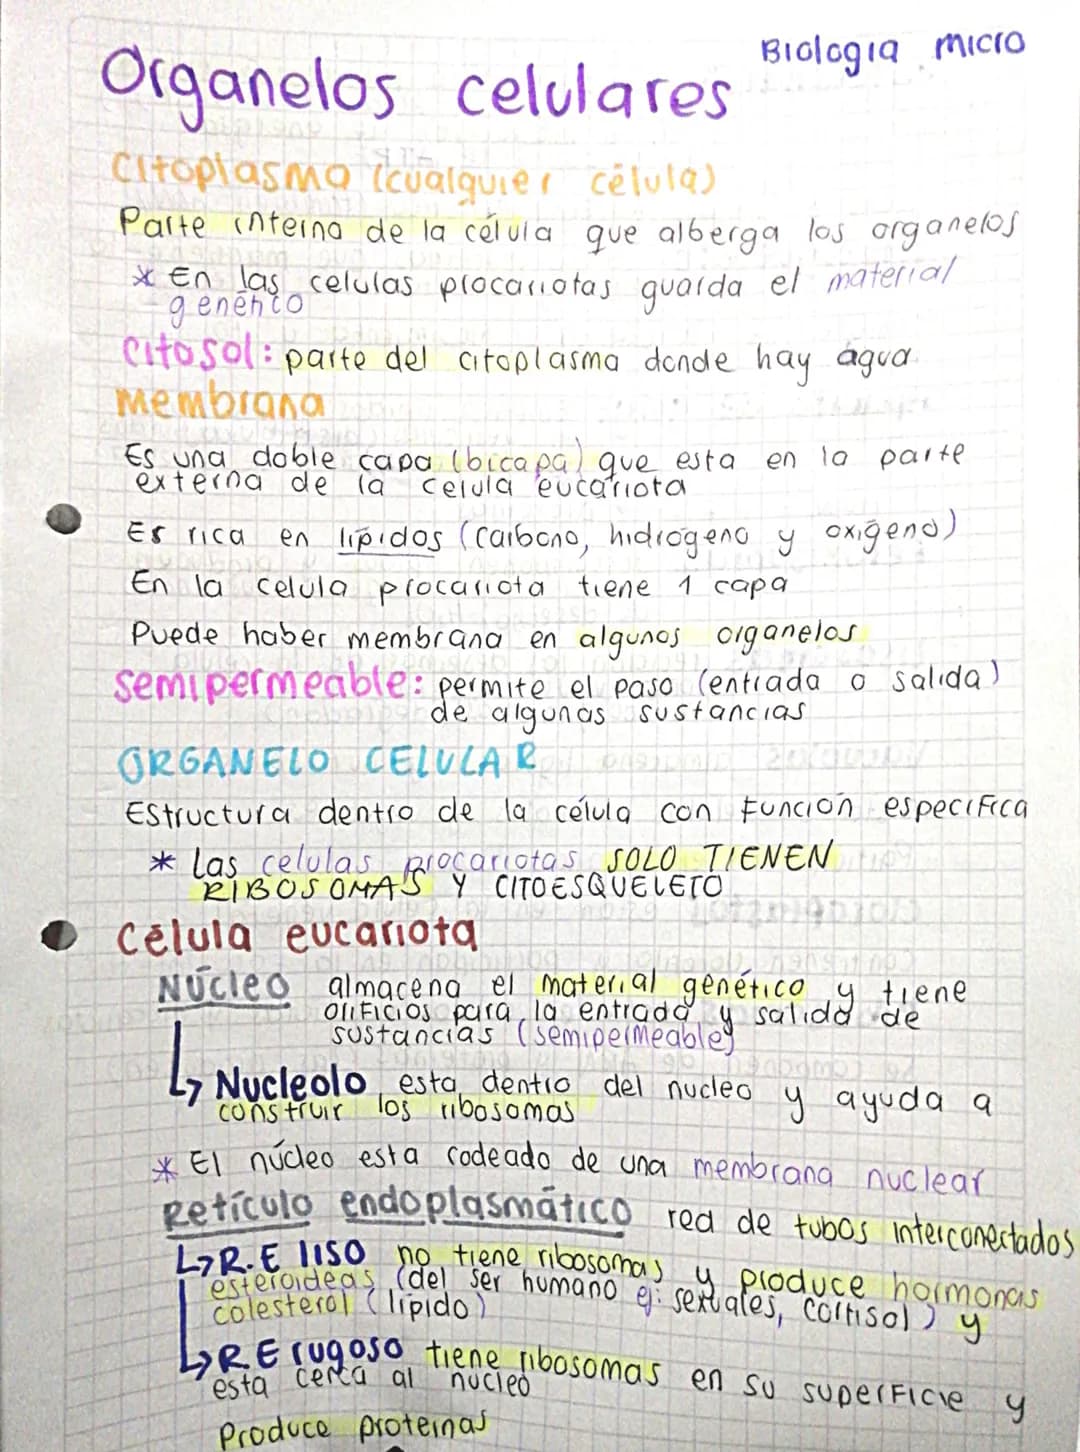 Biologia micro
Organelos celulares
Citoplasma (cualquier célula)
Parte interna de la célula que alberga los organelos
* En las celulas procariotas guarda el material
genético
Citosol: parte del citoplasma donde hay agua
Membrana
Es una doble capa (bicapa) que esta en la parte
externa de la celula eucariota
Es rica en lípidos (carbono, hidrógeno y oxígeno)
En la celula procariota tiene 1 capa
Puede haber membrana en algunos organelos
semipermeable: permite el paso (entrada o salida)
de algunas sustancias
ORGANELO CELULAR
Estructura dentro de la célula con función especifica
* Las celulas procariotas SOLO TIENEN
RIBOSOMAS Y CITOESQUELETO
Célula eucariota
Núcleo almacena el material genético y tiene
orificios para la entrada y salida de
sustancias (semipermeable)
↳ Nucleolo esta dentro del nucleo y ayuda a
construir los ribosomas
* El núcleo esta rodeado de una membrana nuclear
Retículo endoplasmático red de tubos interconectados
↳ R.E liso no tiene ribosomas y produce hormonas
esteroideas (del ser humano ej: sexuales, cortisol) y
colesterol (lípido)
↳ R.E rugoso tiene ribosomas en su superficie y
esta cerca al nucleo
Produce proteinas